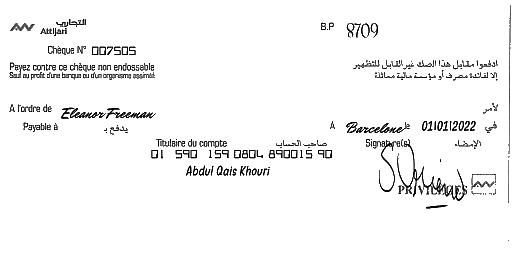 التجاري
Attijari
B.P 8709
Chèque N° 007505
Payez contre ce chèque non endossable
Sauf au profit d'une banque ou d'un organisme assimilé
ادفعوا مقابل هذا الصك غير القابل للتظهير
إلا لفائدة مصرف أو مؤسسة مالية مماثلة
A l'ordre de Eleanor Freeman
لأمر
Payable à يدفع بـ
À Barcelone le 01/01/2022 في
Titulaire du compte صاحب الحساب
Signature(s) الإمضاء
01 590 159 0804 890015 90
Abdul Qais Khouri
PRIVILEGES